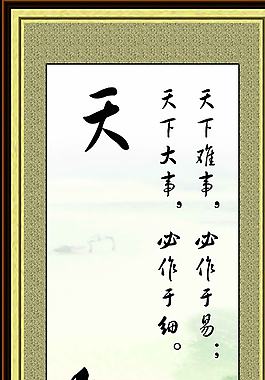 天下难事，必作于易；
天下大事，必作于细。
天